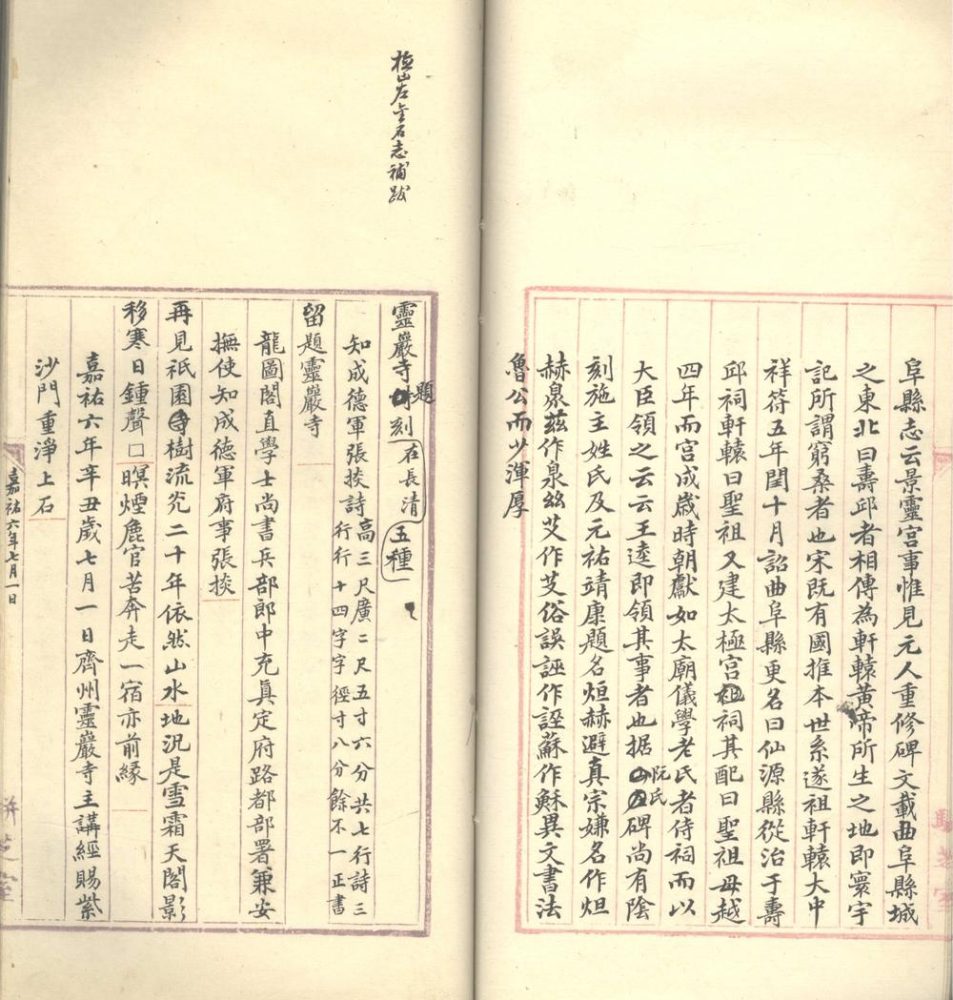 阜縣志云景靈宮事惟見元人重修碑文載曲阜縣城
之東北曰壽邱者相傳為軒轅黃帝所生之地即寰宇
記所謂窮桑者也宋既有國推本世系遂祖軒轅大中
祥符五年閏十月詔曲阜縣更名曰仙源縣從治于壽
邱祠軒轅曰聖祖又建太極宮祠其配曰聖祖母越
四年而宮成歲時朝獻如太廟儀學老氏者侍祠而以
大臣領之云云王逵即領其事者也据阮氏碑尚有陰
刻施主姓氏及元祐靖康題名烜赫避真宗嫌名作烜
赫泉茲作泉絲艾作芟俗誤誣作誙蘇作蘓異文書法
魯公而少渾厚
檢山左金石志補跋
靈巖寺題刻在長清五種
知成德軍張掞詩高三尺廣二尺五寸六分共七行詩三
行行十四字字徑寸八分餘不一正書
留題靈巖寺
龍圖閣直學士尚書兵部郎中充真定府路都部署兼安
撫使知成德軍府事張掞
再見祇園樹流光二十年依然山水地況是雪霜天閣影
移寒日鍾聲□暝煙鹿官苦奔走一宿亦前緣
嘉祐六年辛丑歲七月一日齊州靈巖寺主講經賜紫
沙門重淨上石
嘉祐六年七月一日